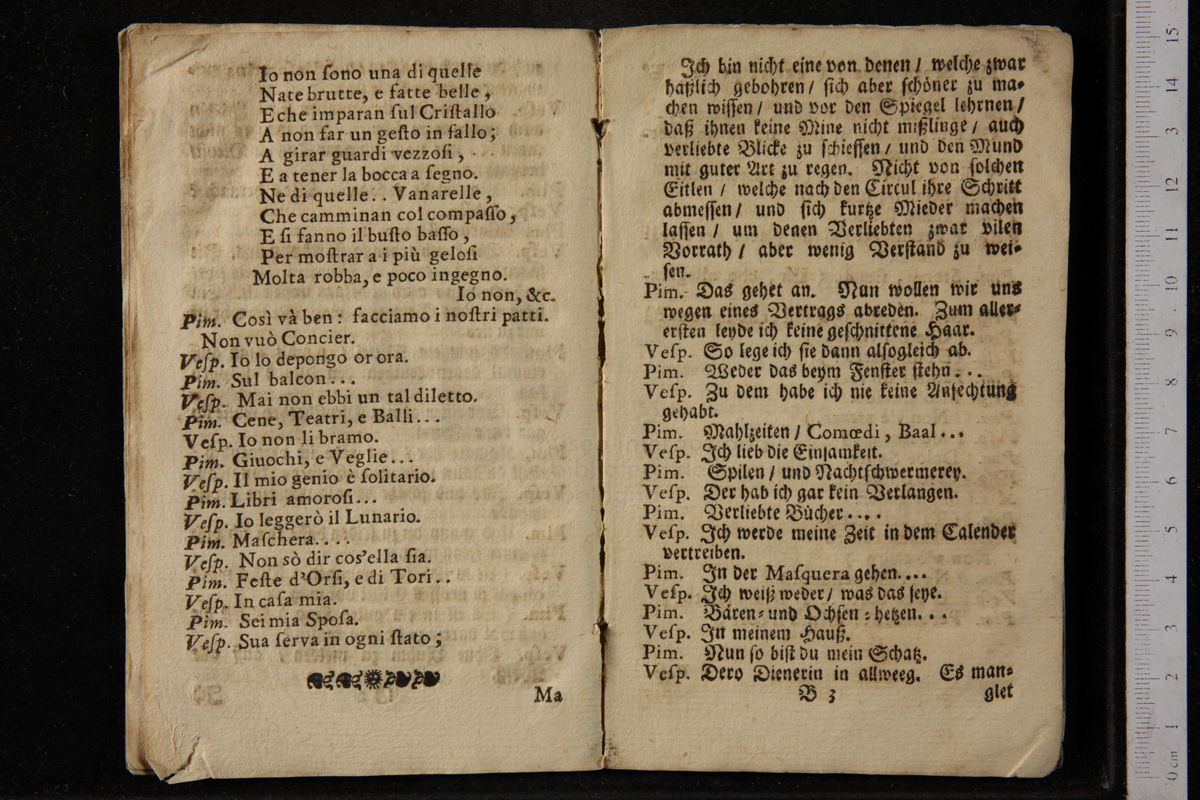 Io non ſono una di quelle
Nate brutte, e fatte belle,
E che imparan ſul Criſtallo
A non far un geſto in fallo;
A girar guardi vezzoſi,
E a tener la bocca a ſegno.
Ne di quelle.. Vanarelle,
Che camminan col compaſſo,
E ſi fanno il buſto baſſo,
Per moſtrar a i più geloſi
Molta robba, e poco ingegno.
Io non, &c.
Pim. Così và ben: facciamo i noſtri patti.
Non vuò Concier.
Veſp. Io lo depongo or ora.
Pim. Sul balcon...
Veſp. Mai non ebbi un tal diletto.
Pim. Cene, Teatri, e Balli...
Veſp. Io non li bramo.
Pim. Giuochi, e Veglie...
Veſp. Il mio genio è ſolitario.
Pim. Libri amoroſi...
Veſp. Io leggerò il Lunario.
Pim. Maſchera....
Veſp. Non sò dir cos'ella ſia.
Pim. Feſte d'Orſi, e di Tori..
Veſp. In caſa mia.
Pim. Sei mia Spoſa.
Veſp. Sua ſerva in ogni ſtato;
Ma
Ich bin nicht eine von denen / welche zwar
haßlich gebohren / ſich aber ſchöner zu ma-
chen wiſſen / und vor den Spiegel lehrnen /
daß ihnen keine Mine nicht mißlinge / auch
verliebte Blicke zu ſchieſſen / und den Mund
mit guter Art zu regen. Nicht von ſolchen
Eitlen / welche nach den Circul ihre Schritt
abmeſſen / und ſich kurtze Mieder machen
laſſen / um denen Verliebten zwar vilen
Vorrath / aber wenig Verſtand zu wei-
ſen.
Pim. Das gehet an. Nun wollen wir uns
wegen eines Vertrags abreden. Zum aller-
erſten leyde ich keine geſchnittene Haar.
Veſp. So lege ich ſie dann alſogleich ab.
Pim. Weder das beym Fenſter ſtehn...
Veſp. Zu dem habe ich nie keine Anfechtung
gehabt.
Pim. Mahlzeiten / Comœdi, Baal...
Veſp. Ich lieb die Einſamkeit.
Pim. Spilen / und Nachtſchwermerey.
Veſp. Der hab ich gar kein Verlangen.
Pim. Verliebte Bücher....
Veſp. Ich werde meine Zeit in dem Calender
vertreiben.
Pim. In der Maſquera gehen....
Veſp. Ich weiß weder / was das ſeye.
Pim. Bären-und Ochſen-hetzen...
Veſp. In meinem Hauß.
Pim. Nun ſo biſt du mein Schatz.
Veſp. Dero Dienerin in allweeg. Es man-
B 3 glet